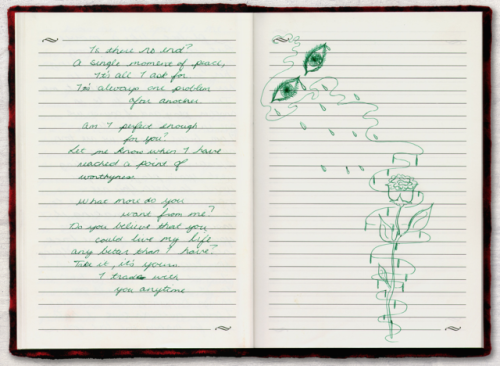 Is there no end?
A single moment of peace,
It's all I ask for
It's always one problem
after another.
Am I perfect enough
for you?
Let me know when I have
reached a point of
worthyness
What more do you
want from me?
Do you believe that you
could live my life
any better than I have?
Take it it's yours
I trade with
you anytime